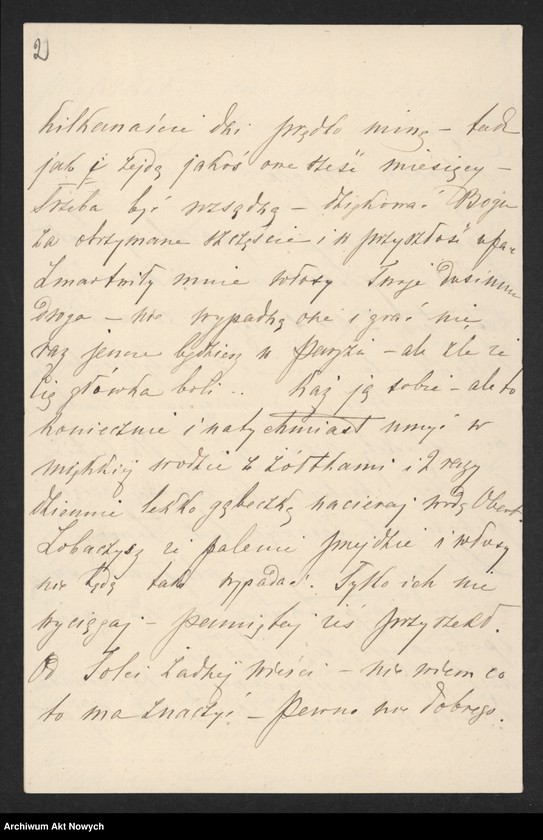 2
kilkanaście dni prędko miną – tak
jak i zejdą jakoś one sześć miesięcy –
Trzeba być rozsądną – dziękować Bogu
za otrzymane szczęście i w przyszłość ufać
Zmartwiły mnie włosy Twoje
droga – no wypadną one i grać nie
raz jeszcze będziesz w Paryżu – ale źle że
Cię główka boli .. Każ ją sobie – ale to
koniecznie i natychmiast umyć w
miękkiej wodzie z żółtkami i 2 razy
dziennie lekko gąbeczką nacieraj wodą
Zobaczysz że palenie przejdzie i włosy
nie będą tak wypadać. Tylko ich nie
wyciągaj – pamiętaj żeś przyrzekł.
Od Tolci żadnej wieści – nie wiem co
to ma znaczyć – Pewno nic dobrego.
Archiwum Akt Nowych